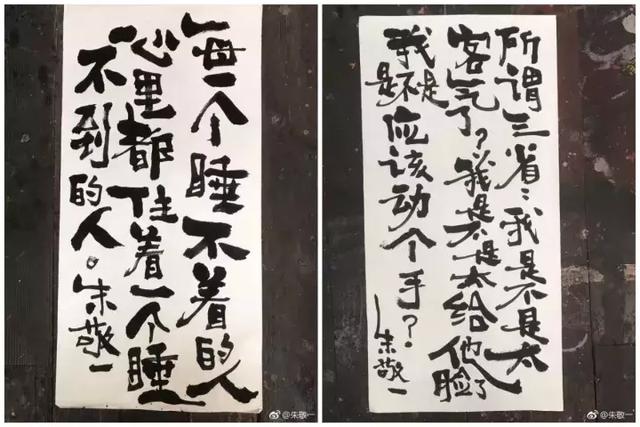 每一个睡不着的人
心里都住着一个睡
不到的人。朱敬一
@朱敬一
所谓三省：我是不是太
客气了？我是不是太给他脸了
我是不是应该动个手？
朱敬一
@朱敬一